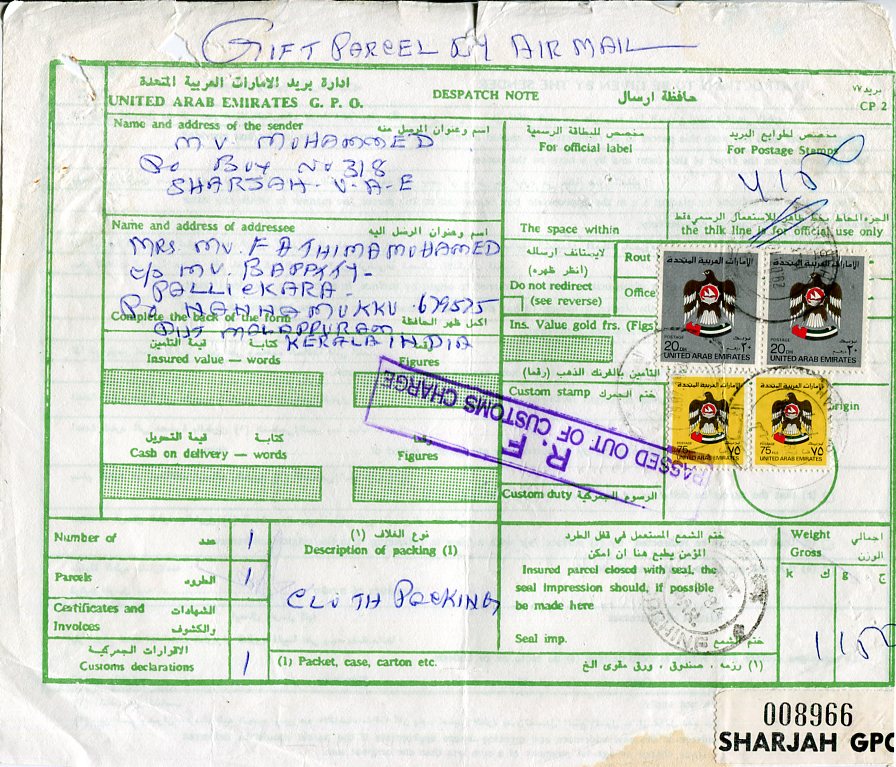 GIFT PARCEL BY AIR MAIL
ادارة بريد الامارات العربية المتحدة
UNITED ARAB EMIRATES G. P. O.
DESPATCH NOTE
حافظة ارسال
بريد ٧٧
CP 2
Name and address of the sender
اسم وعنوان المرسل منه
MV. MOHAMMED
Po Box No 318
SHARJAH - U-A-E
مخصص للبطاقة الرسمية
For official label
مخصص لطوابع البريد
For Postage Stamps
The space within
الجزء المحاط بخط ظاهر للاستعمال الرسمي فقط
the thik line is for official use only
Name and address of addressee
اسم وعنوان المرسل اليه
MRS. MV. FATHIMA MOHAMED
c/o MV. BAPPUTY-
PALLICKARA-
Po NANNAMUKKU 679575
Complete the back of the form
اكمل ظهر الحافظة
DIST MALAPPURAM
KERALA INDIA
لايستانف ارساله
(أنظر ظهره)
Do not redirect
(see reverse)
Rout
Office
Ins. Value gold frs. (Figs)
التأمين بالفرنك الذهب (رقما)
Custom stamp ختم الجمرك
Origin
Custom duty الرسوم الجمركية
قيمة التأمين كتابة
Insured value — words
Figures
قيمة التحويل كتابة
Cash on delivery — words
رقما
Figures
R. F.
PASSED OUT OF CUSTOMS CHARGE
الامارات العربية المتحدة
POSTAGE
20 DH ٢٠
UNITED ARAB EMIRATES
الامارات العربية المتحدة
POSTAGE
20 DH ٢٠
UNITED ARAB EMIRATES
الامارات العربية المتحدة
POSTAGE
75 ٧٥
UNITED ARAB EMIRATES
الامارات العربية المتحدة
POSTAGE
75 FILS ٧٥
UNITED ARAB EMIRATES
Number of عدد 1
Parcels الطرود 1
Certificates and الشهادات
Invoices والكشوف
1
الاقرارات الجمركية
Customs declarations
1
نوع الغلاف (١)
Description of packing (1)
CLOTH PACKING
(1) Packet, case, carton etc.
(١) رزمه ، صندوق ، ورق مقوى الخ
ختم الشمع المستعمل في قفل الطرد
المؤمن يطبع هنا ان امكن
Insured parcel closed with seal, the
seal impression should, if possible
be made here
Seal imp.
ختم الشمع
Weight اجمالي
Gross الوزن
k ك g ج
008966
SHARJAH GPO